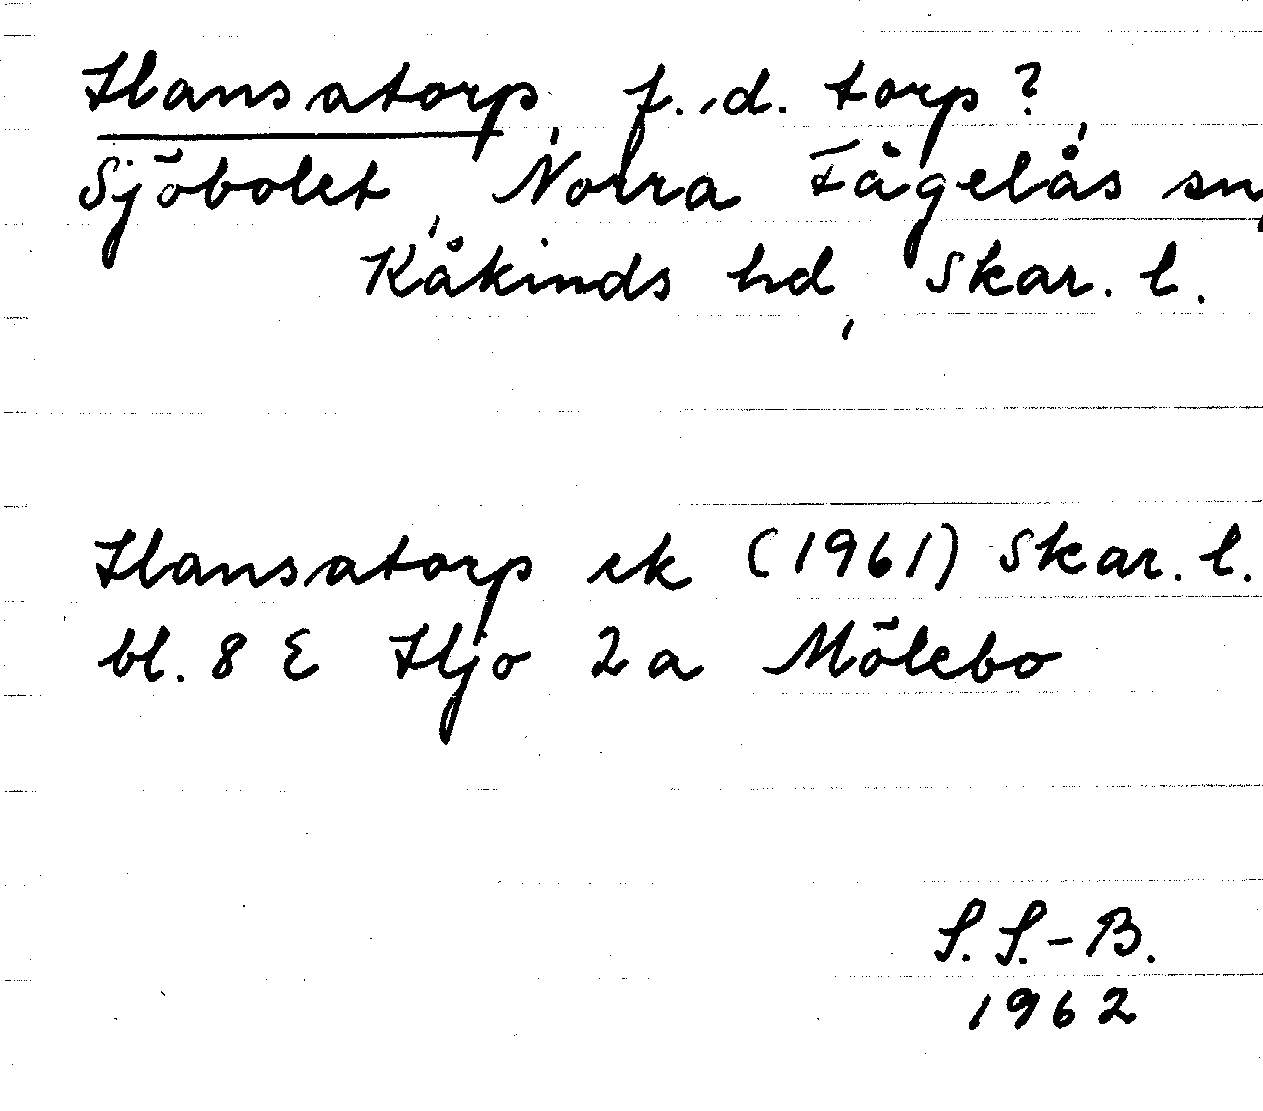 Hansatorp, f.d. torp?,
Sjöbolet, Norra Fågelås sn,
Kåkinds hd, Skar. l.
Hansatorp ek (1961) Skar. l.
bl. 8 E Hjo 2a Mölebo
S. S.-B.
1962